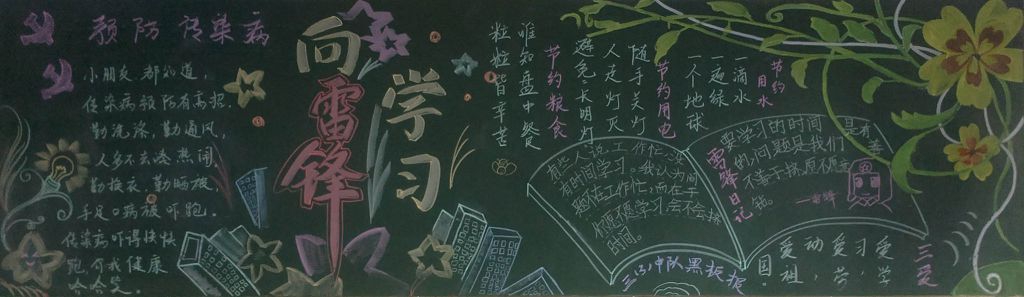 预防传染病
小朋友都知道,
传染病预防有高招.
勤洗澡,勤通风,
人多不去凑热闹,
勤换衣,勤晒被,
手足口病被吓跑.
传染病吓得快快
跑,向我健康
哈哈笑.
向雷锋
学习
谁知盘中餐
粒粒皆辛苦
节约粮食
随手关灯
人走灯灭
避免长明灯
节约用电
一滴水
一遍绿
一个地球
节约
用水
有些人说工作忙,没
有时间学习。我认为问
题不在工作忙,而在于
你愿不愿学习,会不会挤
时间。
雷锋日记
要学习的时间是有
的,问题是我们善
不善于挤,愿不愿意
挤。
——雷锋
三爱
爱学
习,爱劳
动,爱祖
国。
三(3)中队黑板报